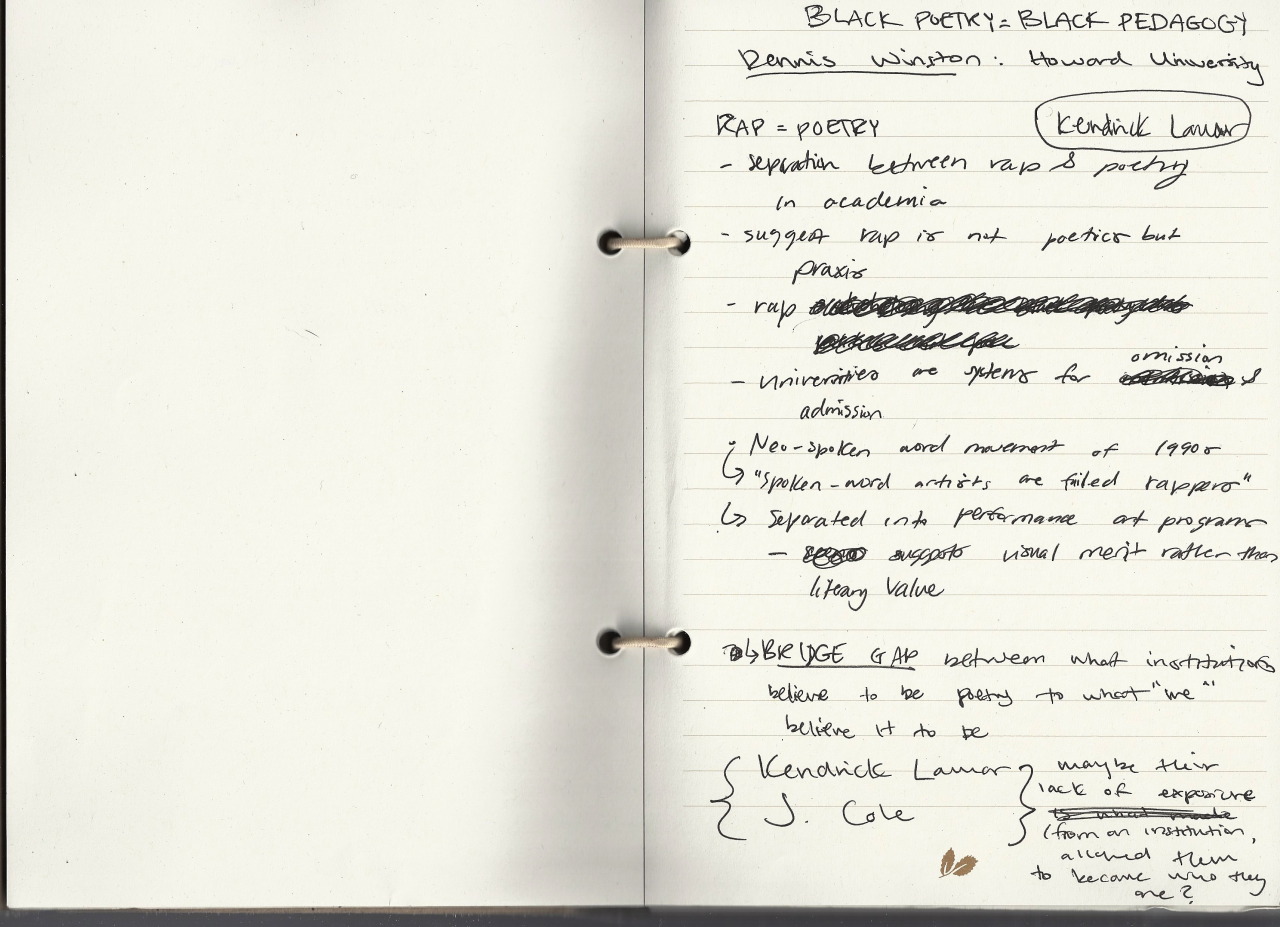 BLACK POETRY = BLACK PEDAGOGY
Dennis Winston : Howard University
RAP = POETRY
Kendrick Lamar
- separation between rap & poetry
in academia
- suggest rap is not poetics but
praxis
- rap
omission
- Universities are systems for &
admission
Neo-spoken word movement of 1990s
↳ "Spoken-word artists are failed rappers"
↳ Separated into performance art programs
- suggests visual merit rather than
literary value
↳ BRIDGE GAP between what institutions
believe to be poetry to what "we"
believe it to be
{ Kendrick Lamar }
J. Cole
maybe their
lack of exposure
is what made
(from an institution,
allowed them
to become who they
are?